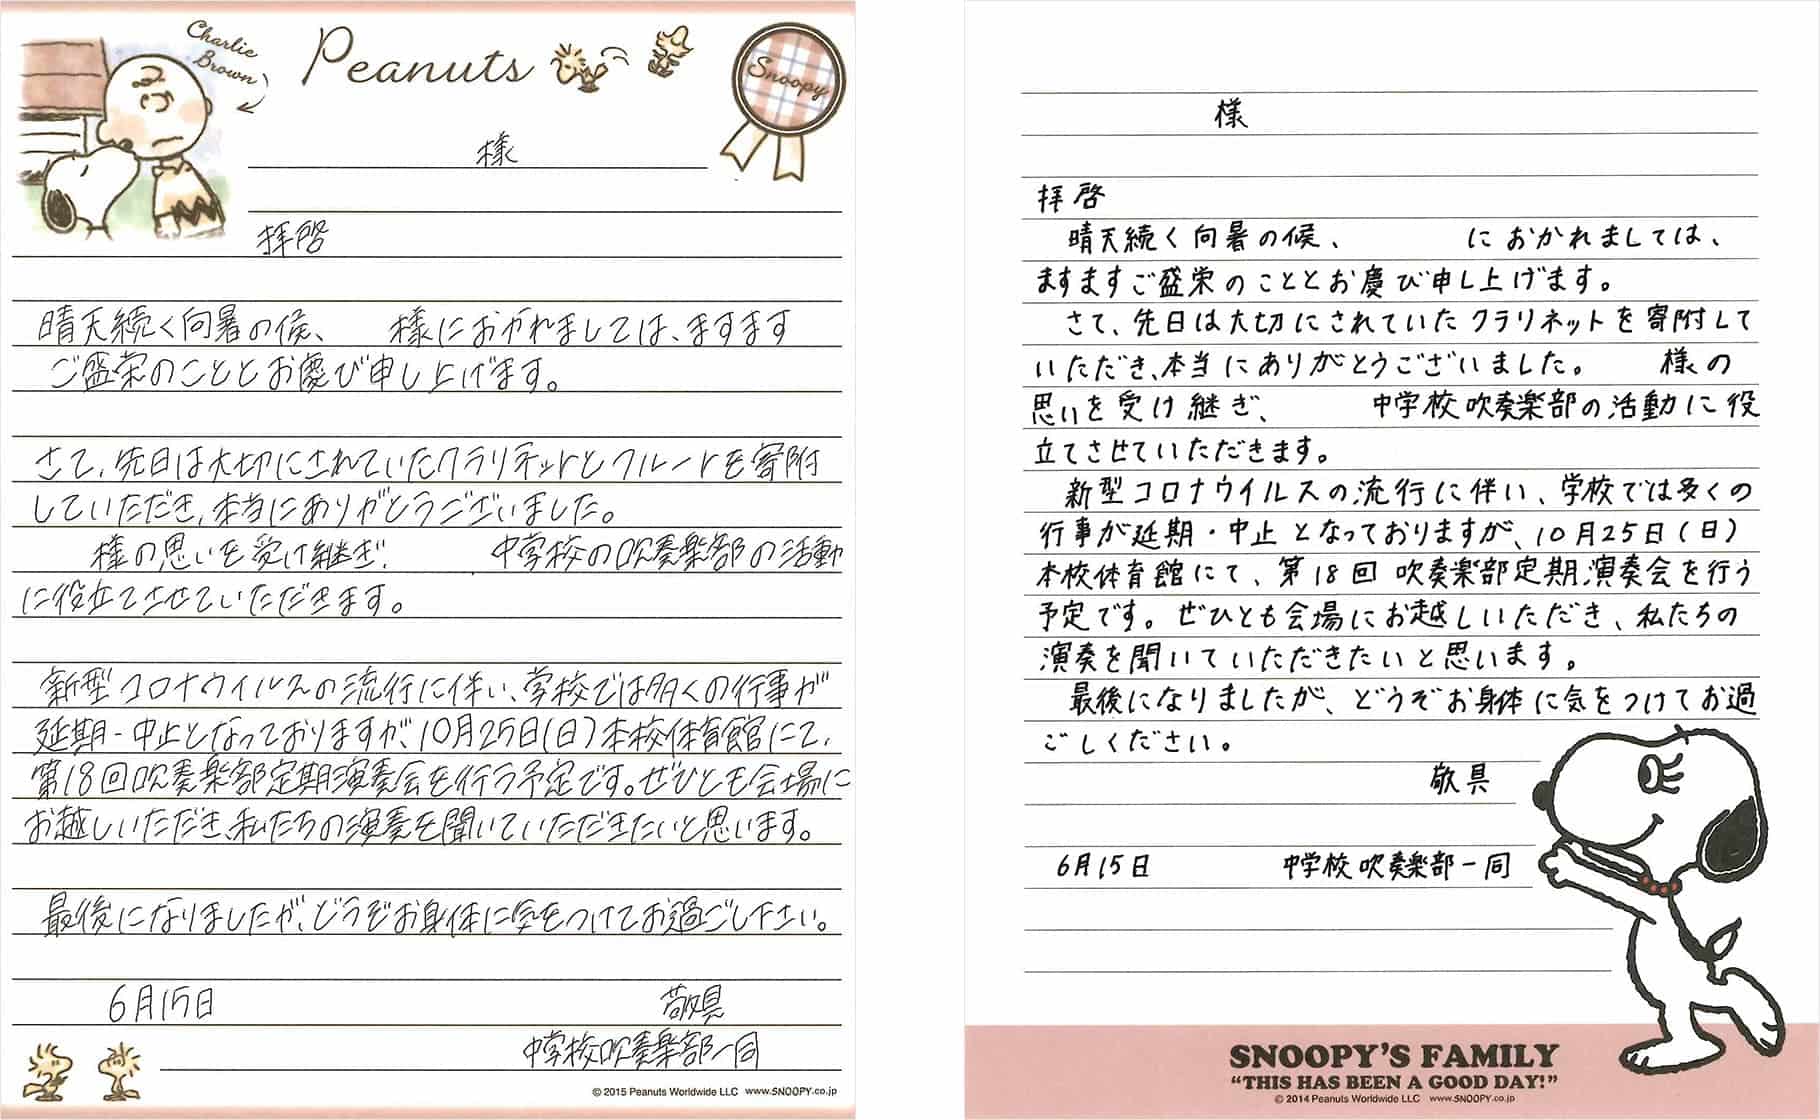 Charlie
Brown
Peanuts
Snoopy
様
拝啓
晴天続く向暑の候、 様におかれましては、ますます
ご盛栄のこととお慶び申し上げます。
さて、先日は大切にされていたクラリネットとフルートを寄附
していただき、本当にありがとうございました。
様の思いを受け継ぎ、 中学校の吹奏楽部の活動
に役立てさせていただきます。
新型コロナウイルスの流行に伴い、学校では多くの行事が
延期・中止となっておりますが、10月25日(日)本校体育館にて、
第18回吹奏楽部定期演奏会を行う予定です。ぜひとも会場に
お越しいただき、私たちの演奏を聞いていただきたいと思います。
最後になりましたが、どうぞお身体に気をつけてお過ごし下さい。
6月15日 敬具
中学校吹奏楽部一同
© 2015 Peanuts Worldwide LLC www.SNOOPY.co.jp
様
拝啓
晴天続く向暑の候、 におかれましては、
ますますご盛栄のこととお慶び申し上げます。
さて、先日は大切にされていたクラリネットを寄附して
いただき、本当にありがとうございました。 様の
思いを受け継ぎ、 中学校吹奏楽部の活動に役
立てさせていただきます。
新型コロナウイルスの流行に伴い、学校では多くの
行事が延期・中止となっておりますが、10月25日(日)
本校体育館にて、第18回吹奏楽部定期演奏会を行う
予定です。ぜひとも会場にお越しいただき、私たちの
演奏を聞いていただきたいと思います。
最後になりましたが、どうぞお身体に気をつけてお過
ごしください。
敬具
6月15日 中学校吹奏楽部一同
SNOOPY'S FAMILY
"THIS HAS BEEN A GOOD DAY!"
© 2014 Peanuts Worldwide LLC www.SNOOPY.co.jp